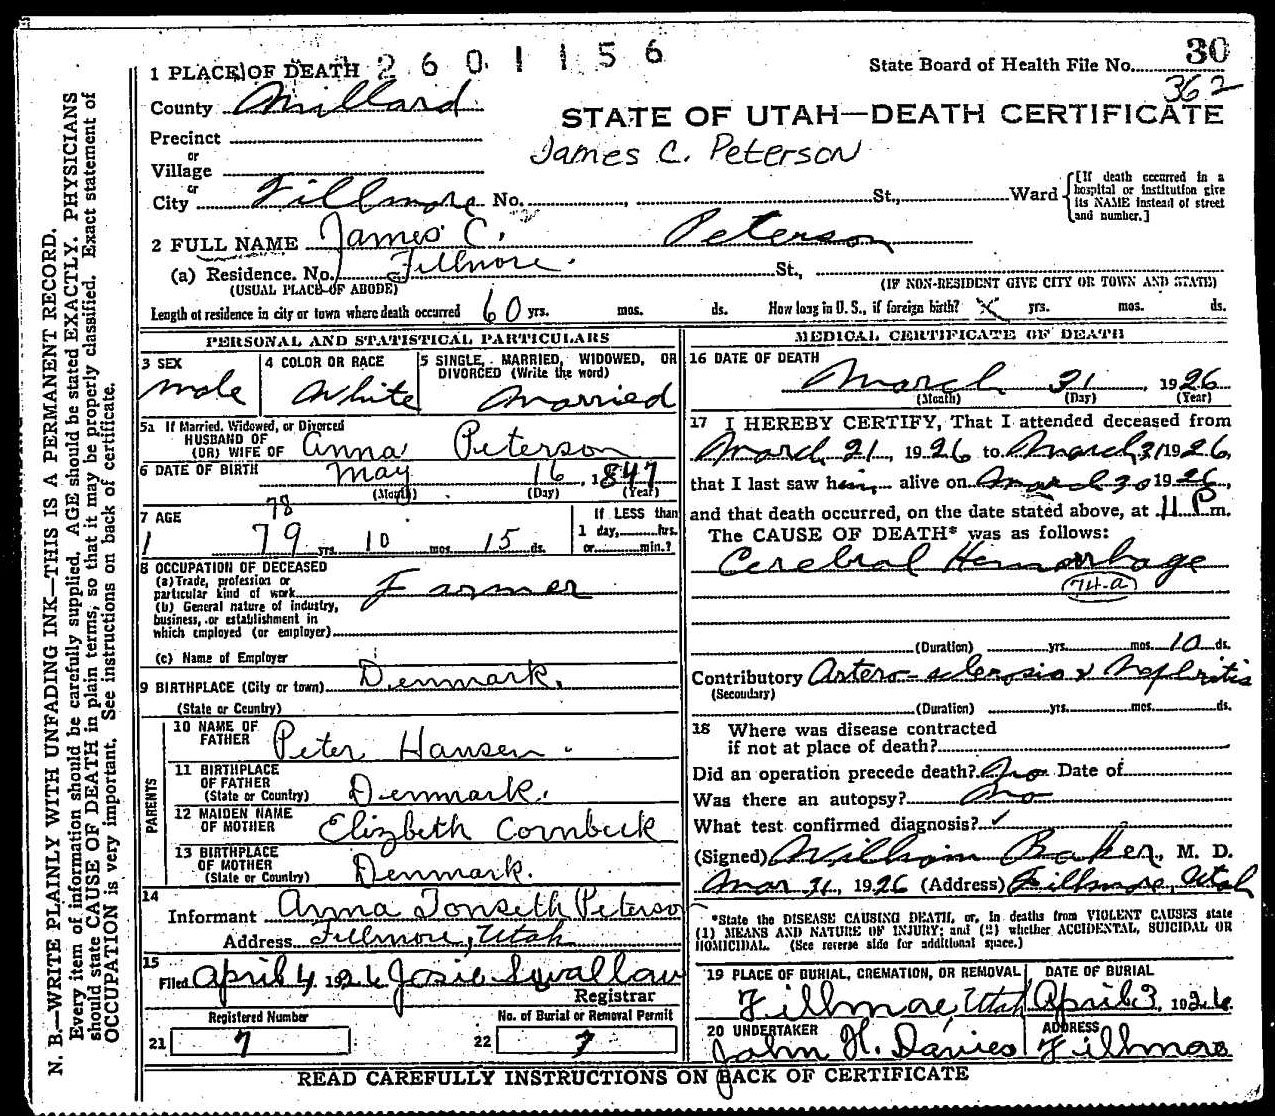 2 6 0 1 1 5 6
30
1 PLACE OF DEATH
State Board of Health File No.
362
County Millard
STATE OF UTAH—DEATH CERTIFICATE
Precinct
James C. Peterson
or
Village
or
City Fillmore No. , St., Ward
[If death occurred in a hospital or institution give its NAME instead of street and number.]
2 FULL NAME James C. Peterson
(a) Residence. No. Fillmore. St.,
(USUAL PLACE OF ABODE) (IF NON-RESIDENT GIVE CITY OR TOWN AND STATE)
Length of residence in city or town where death occurred 60 yrs. mos. ds. How long in U. S., if foreign birth? x yrs. mos. ds.
PERSONAL AND STATISTICAL PARTICULARS
3 SEX
male
4 COLOR OR RACE
White
5 SINGLE, MARRIED, WIDOWED, OR
DIVORCED (Write the word)
Married
5a If Married, Widowed, or Divorced
HUSBAND OF
(OR) WIFE OF Anna Peterson
6 DATE OF BIRTH May 16, 1847
(Month) (Day) (Year)
78
7 AGE
79 yrs. 10 mos. 15 ds.
If LESS than
1 day, hrs.
or min.?
8 OCCUPATION OF DECEASED
(a) Trade, profession or
particular kind of work Farmer
(b) General nature of industry,
business, or establishment in
which employed (or employer)
(c) Name of Employer
9 BIRTHPLACE (City or town) Denmark.
(State or Country)
PARENTS
10 NAME OF
FATHER Peter Hansen.
11 BIRTHPLACE
OF FATHER
(State or Country) Denmark.
12 MAIDEN NAME
OF MOTHER Elizbeth Cornbeck
13 BIRTHPLACE
OF MOTHER
(State or Country) Denmark.
14
Informant Anna Tonseth Peterson
Address Fillmore, Utah
15
Filed April 4, 1926 Josie Swallow
Registrar
Registered Number
21 7
No. of Burial or Removal Permit
22 7
MEDICAL CERTIFICATE OF DEATH
16 DATE OF DEATH
March 31, 1926
(Month) (Day) (Year)
17 I HEREBY CERTIFY, That I attended deceased from
March 21, 1926 to March 31 1926,
that I last saw him alive on March 30 1926,
and that death occurred, on the date stated above, at 11 P m.
The CAUSE OF DEATH* was as follows:
Cerebral Hemorrhage
74-a
(Duration) yrs. mos. 10 ds.
Contributory Artero-sclerosis & Nephritis
(Secondary)
(Duration) yrs. mos. ds.
18 Where was disease contracted
if not at place of death?
Did an operation precede death? No Date of
Was there an autopsy? No
What test confirmed diagnosis? ✓
(Signed) William Baker, M. D.
Mar 31, 1926 (Address) Fillmore, Utah
*State the DISEASE CAUSING DEATH, or, in deaths from VIOLENT CAUSES state
(1) MEANS AND NATURE OF INJURY; and (2) whether ACCIDENTAL, SUICIDAL OR
HOMICIDAL. (See reverse side for additional space.)
19 PLACE OF BURIAL, CREMATION, OR REMOVAL
Fillmore, Utah
DATE OF BURIAL
April 3, 1926
20 UNDERTAKER
John H. Davies
ADDRESS
Fillmore
READ CAREFULLY INSTRUCTIONS ON BACK OF CERTIFICATE
N. B.—WRITE PLAINLY WITH UNFADING INK—THIS IS A PERMANENT RECORD.
Every item of information should be carefully supplied. AGE should be stated EXACTLY. PHYSICIANS
should state CAUSE OF DEATH in plain terms, so that it may be properly classified. Exact statement of
OCCUPATION is very important. See instructions on back of certificate.